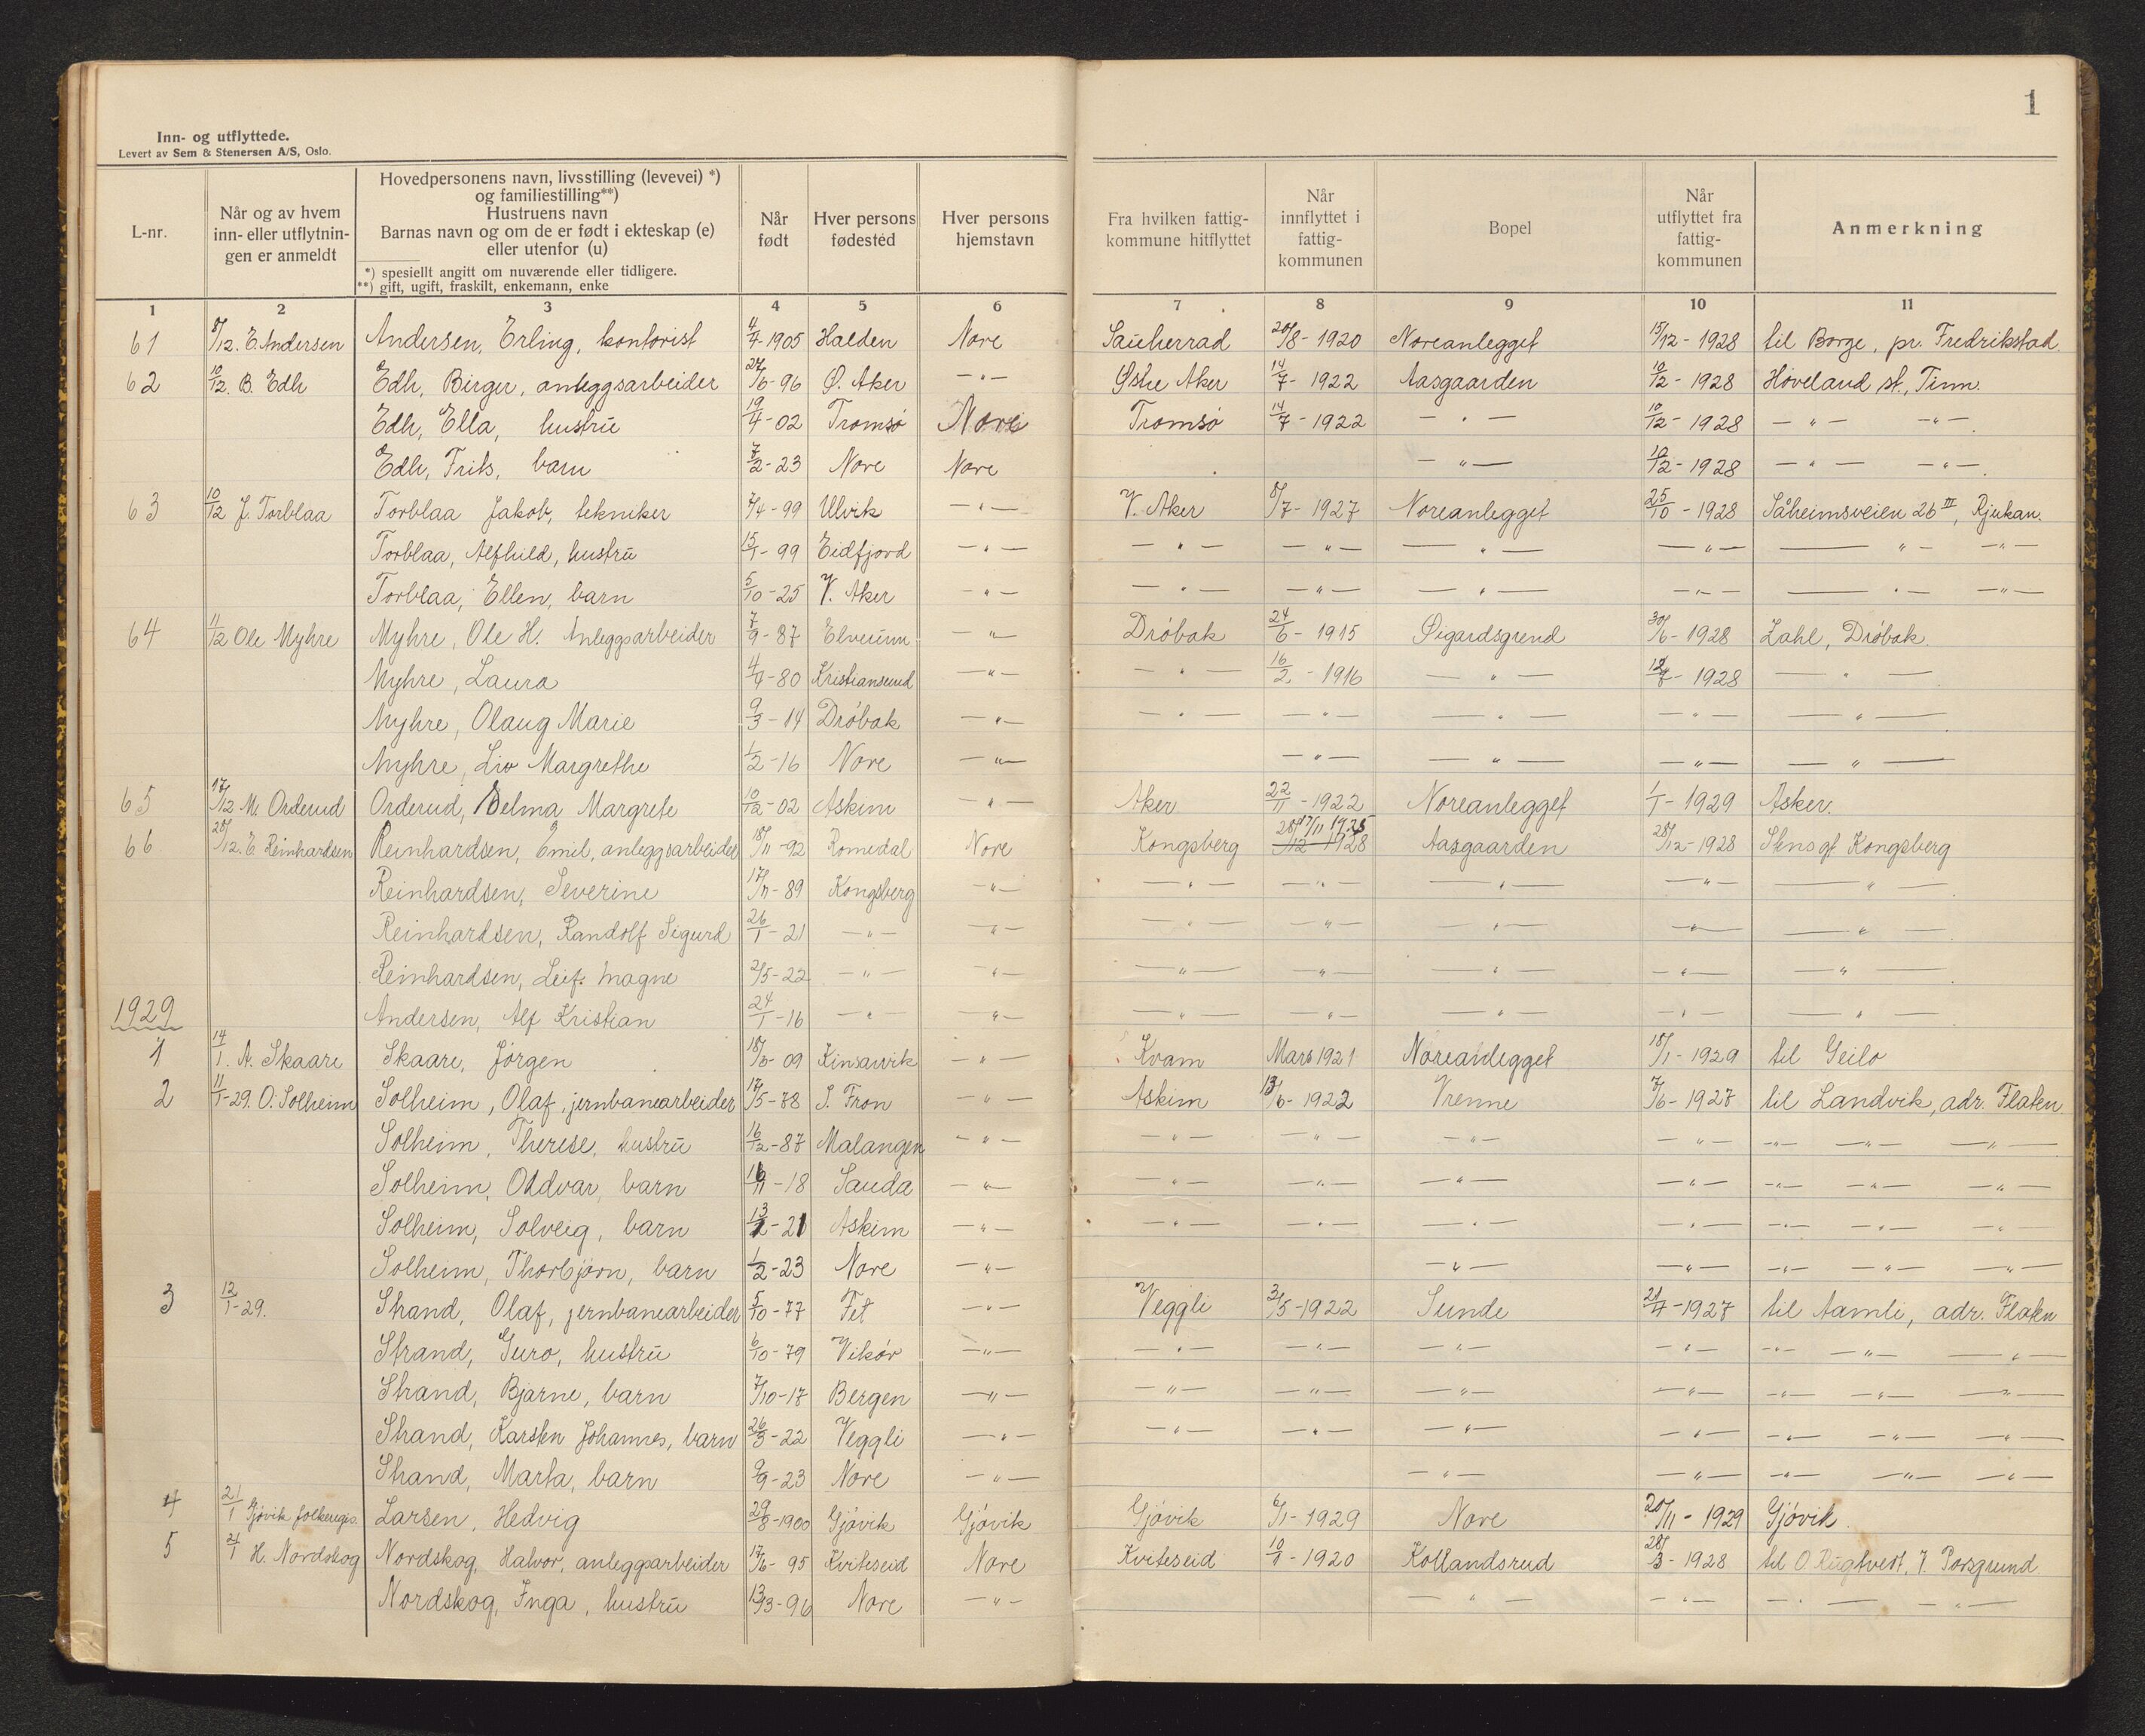 1
Inn- og utflyttede.
Levert av Sem & Stenersen A/S, Oslo.
L-nr. | Når og av hvem inn- eller utflytnin- gen er anmeldt | Hovedpersonens navn, livsstilling (levevei) *) og familiestilling**) Hustruens navn Barnas navn og om de er født i ekteskap (e) eller utenfor (u) *) spesielt angitt om nuværende eller tidligere. **) gift, ugift, fraskilt, enkemann, enke | Når født | Hver persons fødested | Hver persons hjemstavn | Fra hvilken fattig- kommune hitflyttet | Når innflyttet i fattig- kommunen | Bopel | Når utflyttet fra fattig- kommunen | Anmerkning
1 2 3 4 5 6 7 8 9 10 11
61 8/12. E. Andersen Andersen, Erling, kontorist 4/4-1905 Halden Nore Sauherrad 20/8-1920 Noreanlegget 15/12-1928 til Borge, pr. Fredrikstad.
62 10/12. B. Edh Edh, Birger, anleggsarbeider 27/6-96 Ø. Aker -"- Østre Aker 14/7-1922 Aasgaarden 10/12-1928 Hoveland st., Tinn.
Edh, Ella, hustru 19/4-02 Tromsø Nore Tromsø 14/7-1922 -"- 10/12-1928 -"- -"-
Edh, Frits, barn 7/2-23 Nore Nore -"- 10/12-1928 -"- -"-
63 10/12 J. Torblaa Torblaa Jakob, tekniker 7/4-99 Ulvik -"- V. Aker 8/7-1927 Noreanlegget 25/10-1928 Såheimsveien 26 III, Rjukan.
Torblaa, Alfhild, hustru 15/1-99 Eidfjord -"- -"- -"- -"- -"- -"- -"-
Torblaa, Ellen, barn 5/10-25 V. Aker -"- -"- -"- -"- -"- -"- -"-
64 11/12 Ole Myhre Myhre, Ole H. Anleggsarbeider 7/9-87 Elverum -"- Drøbak 24/6-1915 Øigardsgrend 30/6-1928 Lahl, Drøbak.
Myhre, Laura 4/9-80 Kristiansund -"- -"- 16/2-1916 -"- 12/8-1928 -"-
Myhre, Olaug Marie 9/3-14 Drøbak -"- -"- -"- -"- -"- -"-
Myhre, Liv Margrethe 1/2-16 Nore -"- -"- -"- -"- -"-
65 17/12 M. Orderud Orderud, Selma Margrete 10/12-02 Askim -"- Aker 22/11-1922 Noreanlegget 1/1-1929 Asker.
66 28/12. E. Reinhardsen Reinhardsen, Emil, anleggsarbeider 18/11-92 Romedal Nore Kongsberg 28/12 1928 17/11 1925 Aasgaarden 28/12-1928 Stensgt Kongsberg
Reinhardsen, Severine 17/11-89 Kongsberg -"- -"- -"- -"- -"- -"-
Reinhardsen, Randolf Sigurd 26/1-21 -"- -"- -"- -"- -"- -"- -"-
Reinhardsen, Leif Magne 2/5-22 -"- -"- -"- -"- -"- -"- -"-
1929 Andersen, Alf Kristian 24/1-16 -"- -"- -"- -"- -"- -"- -"-
1 14/1. A. Skaare Skaare, Jørgen 18/6-09 Kinsarvik -"- Kvam Mars 1921 Noreanlegget 18/1-1929 til Geilo
2 11/1-29. O. Solheim Solheim, Olaf, jernbanearbeider 17/5-78 S. Fron -"- Askim 13/6-1922 Vrenne 7/6-1927 til Landvik, adr. Flaten
Solheim, Therese, hustru 16/12-87 Malangen -"- -"- -"- -"- -"- -"- -"- -"-
Solheim, Oddvar, barn 16/11-18 Sauda -"- -"- -"- -"- -"- -"- -"- -"-
Solheim, Solveig, barn 13/2-21 Askim -"- -"- -"- -"- -"- -"- -"- -"-
Solheim, Thorbjørn, barn 1/2-23 Nore -"- -"- -"- -"- -"- -"-
3 12/1-29. Strand, Olaf, jernbanearbeider 5/10-77 Fet -"- Veggli 3/5-1922 Sunde 21/7-1927 til Aamli, adr. Flaten
Strand, Guro, hustru 6/10-79 Vikør -"- -"- -"- -"- -"- -"- -"- -"-
Strand, Bjarne, barn 7/10-17 Bergen -"- -"- -"- -"- -"- -"- -"- -"-
Strand, Karsten Johannes, barn 26/3-22 Veggli -"- -"- -"- -"- -"- -"- -"- -"-
Strand, Marta, barn 9/9-23 Nore -"- -"- -"- -"- -"- -"-
4 21/1 Gjøvik folkeregis. Larsen, Hedvig 29/8-1900 Gjøvik Gjøvik Gjøvik 6/1-1929 Nore 20/11-1929 Gjøvik.
5 21/1 H. Nordskog Nordskog, Halvor, anleggsarbeider 17/6-95 Kviteseid Nore Kviteseid 10/8-1920 Kollandsrud 28/3-1928 til O. Rugtvedt, Porsgrund
Nordskog, Inga, hustru 13/3-96 Nore -"- -"- -"- -"- -"-